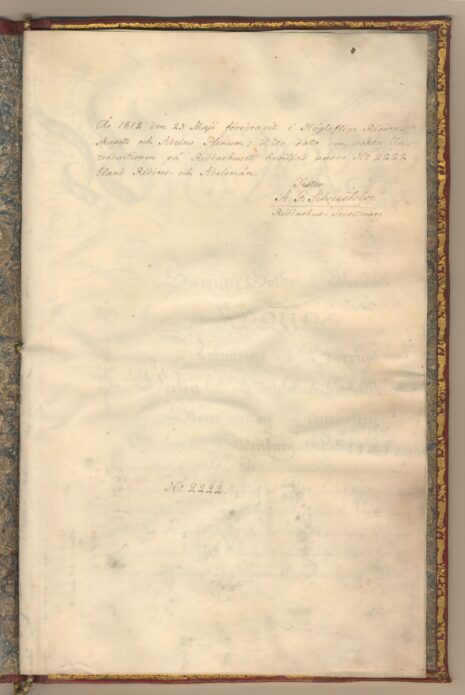 År 1812 den 23 Maji föredraget i Höglofliga Ridder-
skapets och Adelns Plenum; Dito dato den sökta In-
troductionen på Riddarhuset beviljad under No 2222
bland Ridder- och Adelsmän.
Testor
A. F.
Riddarhus-Secreterare
No 2222.